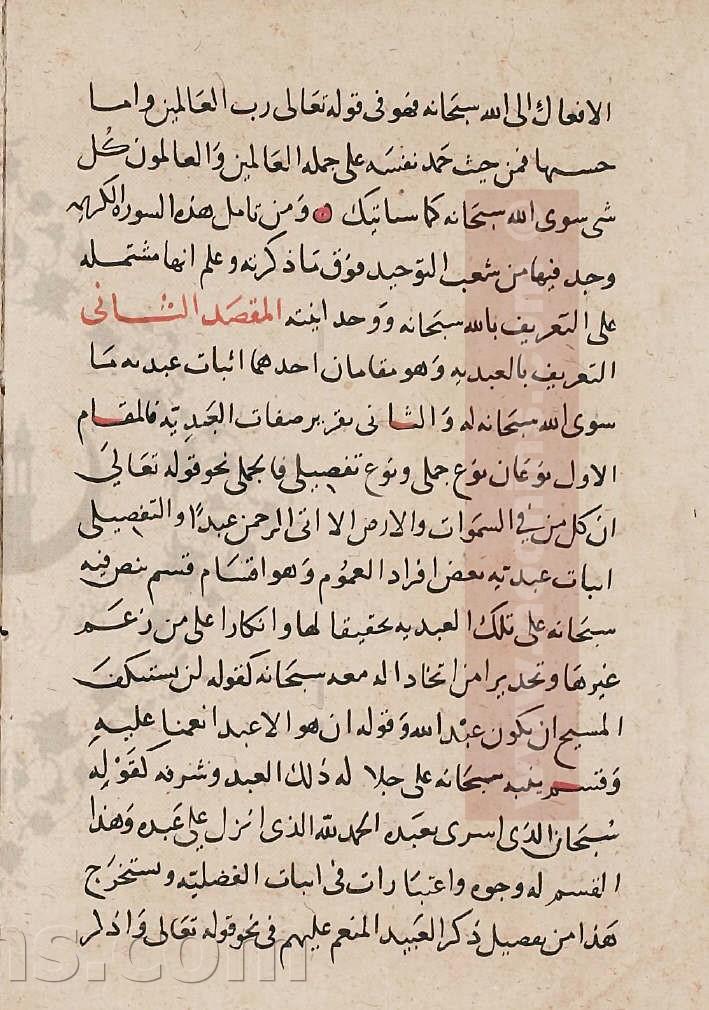 الافعال الى الله سبحانه فهو فى قوله تعالى رب العالمين واما
حسها فمن حيث حمد نفسه على جمله العالمين والعالمون كل
شى سوى الله سبحانه كما سياتيك ومن تامل هذه السوره الكريمه
وجد فيها من شعب التوحيد فوق ما ذكرته وعلم انها مشتمله
على التعريف بالله سبحانه ووحدانيته المقصد الثانى
التعريف بالعبديه وهو مقامان احدهما اثبات عبديه ما
سوى الله سبحانه له والثانى تقرير صفات العبديه فالمقام
الاول نوعان نوع جملى ونوع تفصيلى فالجملى نحو قوله تعالى
ان كل من في السموات والارض الا اتى الرحمن عبدًا والتفصيلى
اثبات عبديه بعض افراد العموم وهو اقسام قسم نص فيه
سبحانه على تلك العبديه تحقيقا لها وانكارا على من زعم
غيرها وتحذيرا من اتخاذ اله معه سبحانه كقوله لن يستنكف
المسيح ان يكون عبد الله وقوله ان هو الا عبد انعمنا عليه
وقسم ينبه سبحانه على جلالة ذلك العبد وشرفه كقوله
سبحان الذى اسرى بعبده الحمد لله الذى انزل على عبده وهذا
القسم له وجوه واعتبارات فى اثبات الفضليه ويستخرج
هذا من تفصيل ذكر العبيد المنعم عليهم فى نحو قوله تعالى واذكر